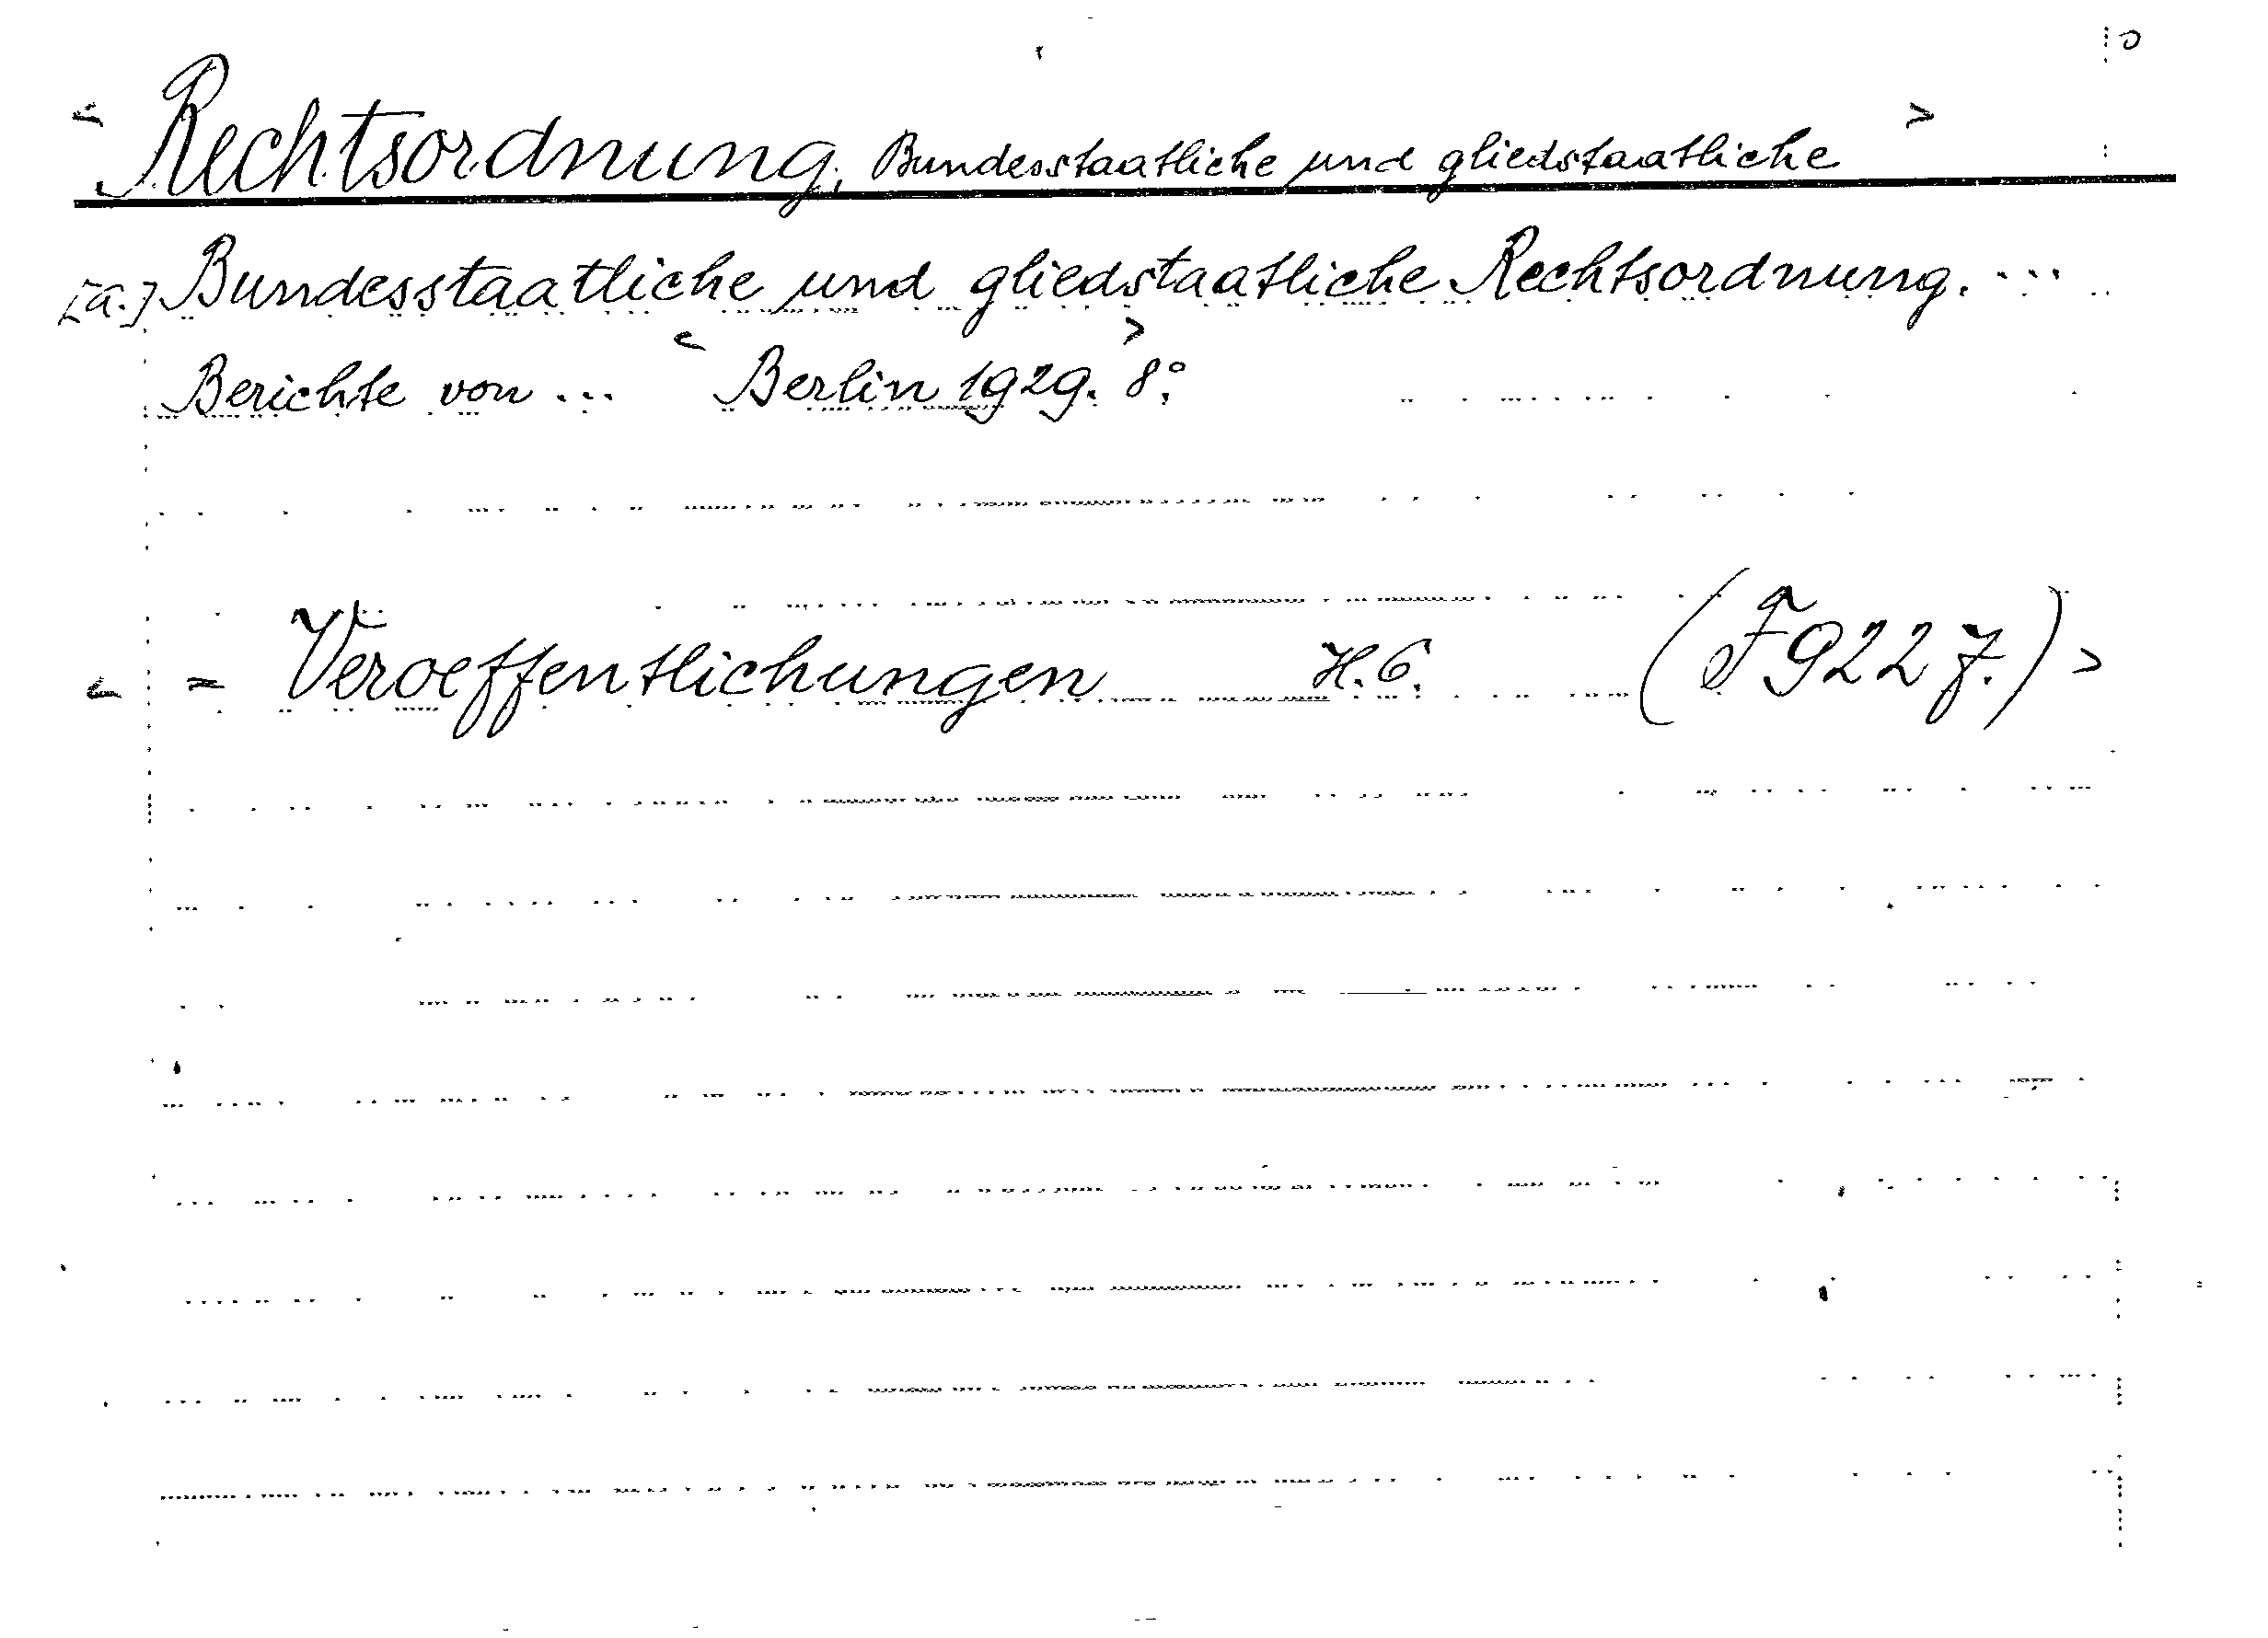 < Rechtsordnung, Bundesstaatliche und gliedstaatliche >
[a.] Bundesstaatliche und gliedstaatliche Rechtsordnung. ...
Berichte von ... < Berlin 1929. > 8°.
< = Veroeffentlichungen H. 6. (F 9227.) >